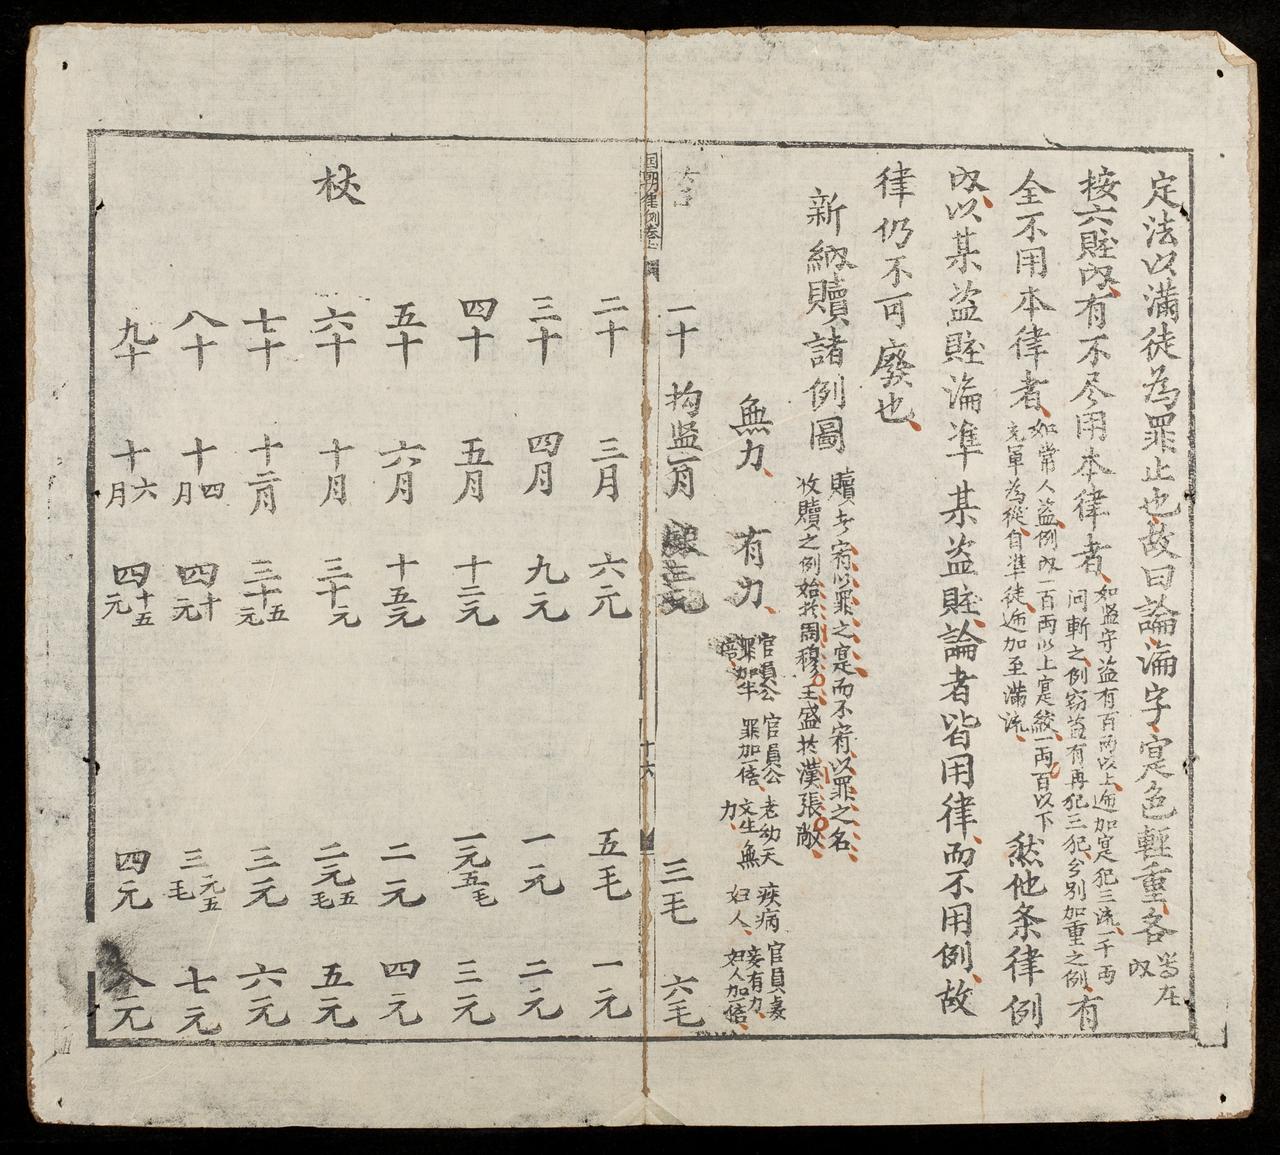 定法以滿徒為罪止也故曰論淪字寔色輕重各
按六賍㕥有不尽用本律者如监守盗有百两以上逓加寔犯三流一千两
问斬之例窃盗有再犯三犯分別加重之例有
全不用本律者如常人盗例㕥一百两以上寔絞一两百以下
充軍為從自凖徒逓加至满流然他条律例
㕥以某盗賍淪凖某盗賍論者皆用律而不用例故
律仍不可廢也
新納贖諸例圖贖者宥以罪之寔而不宥以罪之名
收贖之例始扵周穆王盛扵漢張敞
無力 有力 官員公罪加半倍 官員公罪加一倍 老幼天文生無力 疾病妇人 官員妻妾有力妇人加倍
一十 拘监一月 三毛 六毛
国朝律例卷
十六
二十 三月 六元 五毛 一元
三十 四月 九元 一元 二元
四十 五月 十二元 一元五毛 三元
五十 六月 十五元 二元 四元
杖
六十 十月 三十元 二元五毛 五元
七十 十二月 三十五元 三元 六元
八十 十四月 四十元 三元五毛 七元
九十 十六月 四十五元 四元 八元